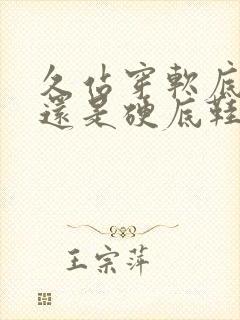 久站穿軟底
還是硬底鞋
王宗萍